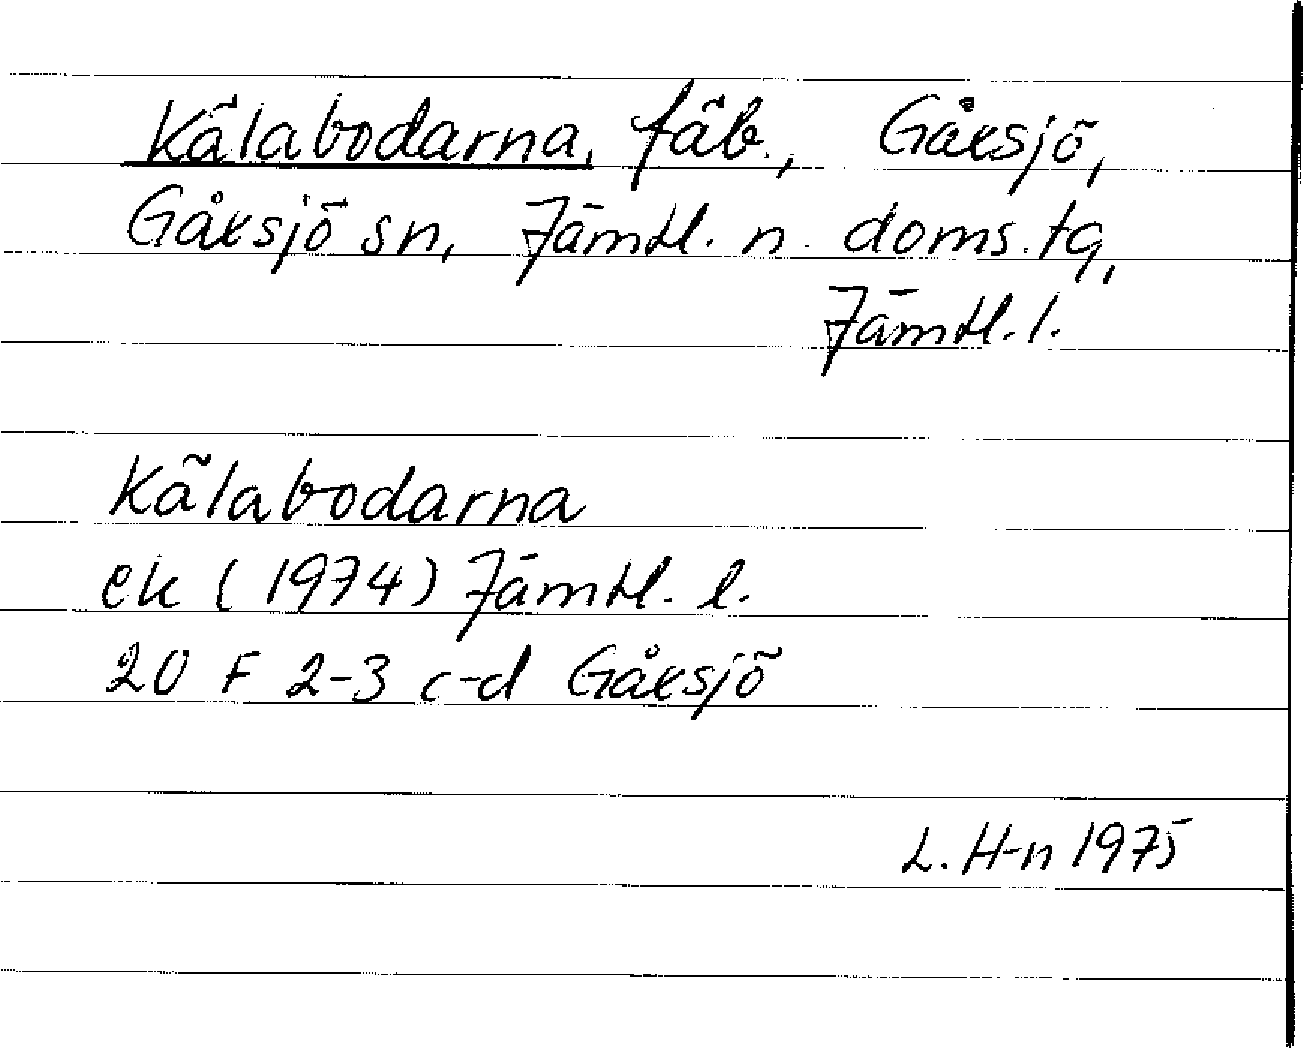 Kälabodarna, fäb., Gåxsjö,
Gåxsjö sn, Jämtl. n. doms. tg,
Jämtl. l.
Kälabodarna
ek (1974) Jämtl. l.
20 F 2-3 c-d Gåxsjö
L. H-n 1975